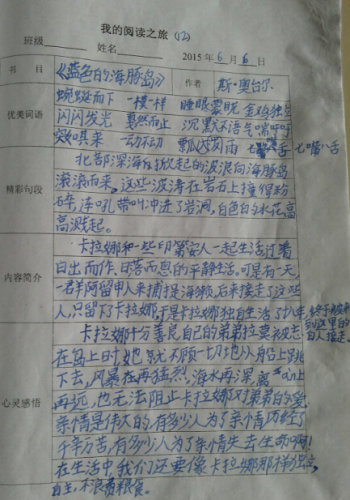 我的阅读之旅 (12)
班级 姓名 2015年6月6日
书目 《蓝色的海豚岛》 作者 斯·奥台尔
优美词语
蜿蜒而下 一模一样 睡眼蒙眬 金鸡独立
闪闪发光 戛然而止 沉默不语 气喘吁吁
一动不动 瓢泼大雨 七嘴八舌
精彩句段
北部深海区掀起的波浪向海豚岛
滚滚而来,这些波涛在岩石上撞得粉
碎,连吼带叫冲进了岩洞,白色的水花高
高溅起。
内容简介
卡拉娜和一些印第安人一起生活过着
日出而作,日落而息的平静生活,可是有一天,
一群阿留申人来捕捉海獭,后来接走了这些
人,只留了卡拉娜,于是卡拉娜独自生活了
心灵感悟
卡拉娜十分善良自己的弟弟拉莫被忘
在岛上时,她就不顾一切地从船上跳
下去,风暴在再猛烈,海水再深,离
再远,也无法阻止卡拉娜对弟弟的爱,
亲情是伟大的,有多少人为了亲情历经了
千辛万苦,有多少人为了亲情失去生命啊!
在生活中我们还要像卡拉娜那样独立
自主,不浪费粮食。